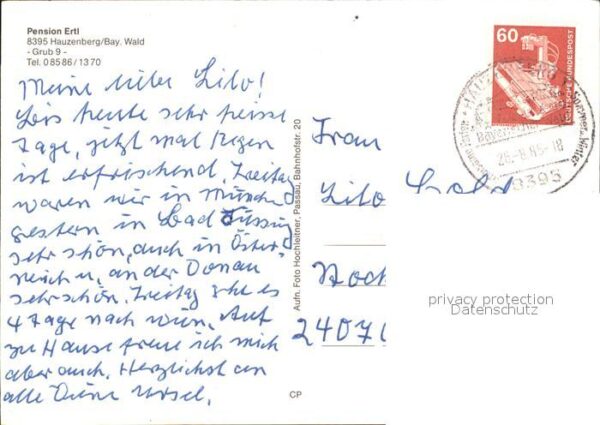 Pension Ertl
8395 Hauzenberg/Bay. Wald
- Grub 9 -
Tel. 08586/1370
Meine liebe Lilo!
Bis heute sehr heisse
Tage, jetzt mal Regen
ist erfrischend. Freitag
waren wir in München
gestern in Bad Füssing
sehr schön, auch in Öster-
reich u. an der Donau
sehr schön. Freitag geht es
4 Tage nach Wien. Auf
zu Hause freue ich mich
aber auch. Herzlichst an
alle Deine Ursel.
Aufn. Foto Hochleitner, Passau, Bahnhofstr. 20
CP
60
DEUTSCHE BUNDESPOST
8395
Frau
Lilo
24071
privacy protection
Datenschutz